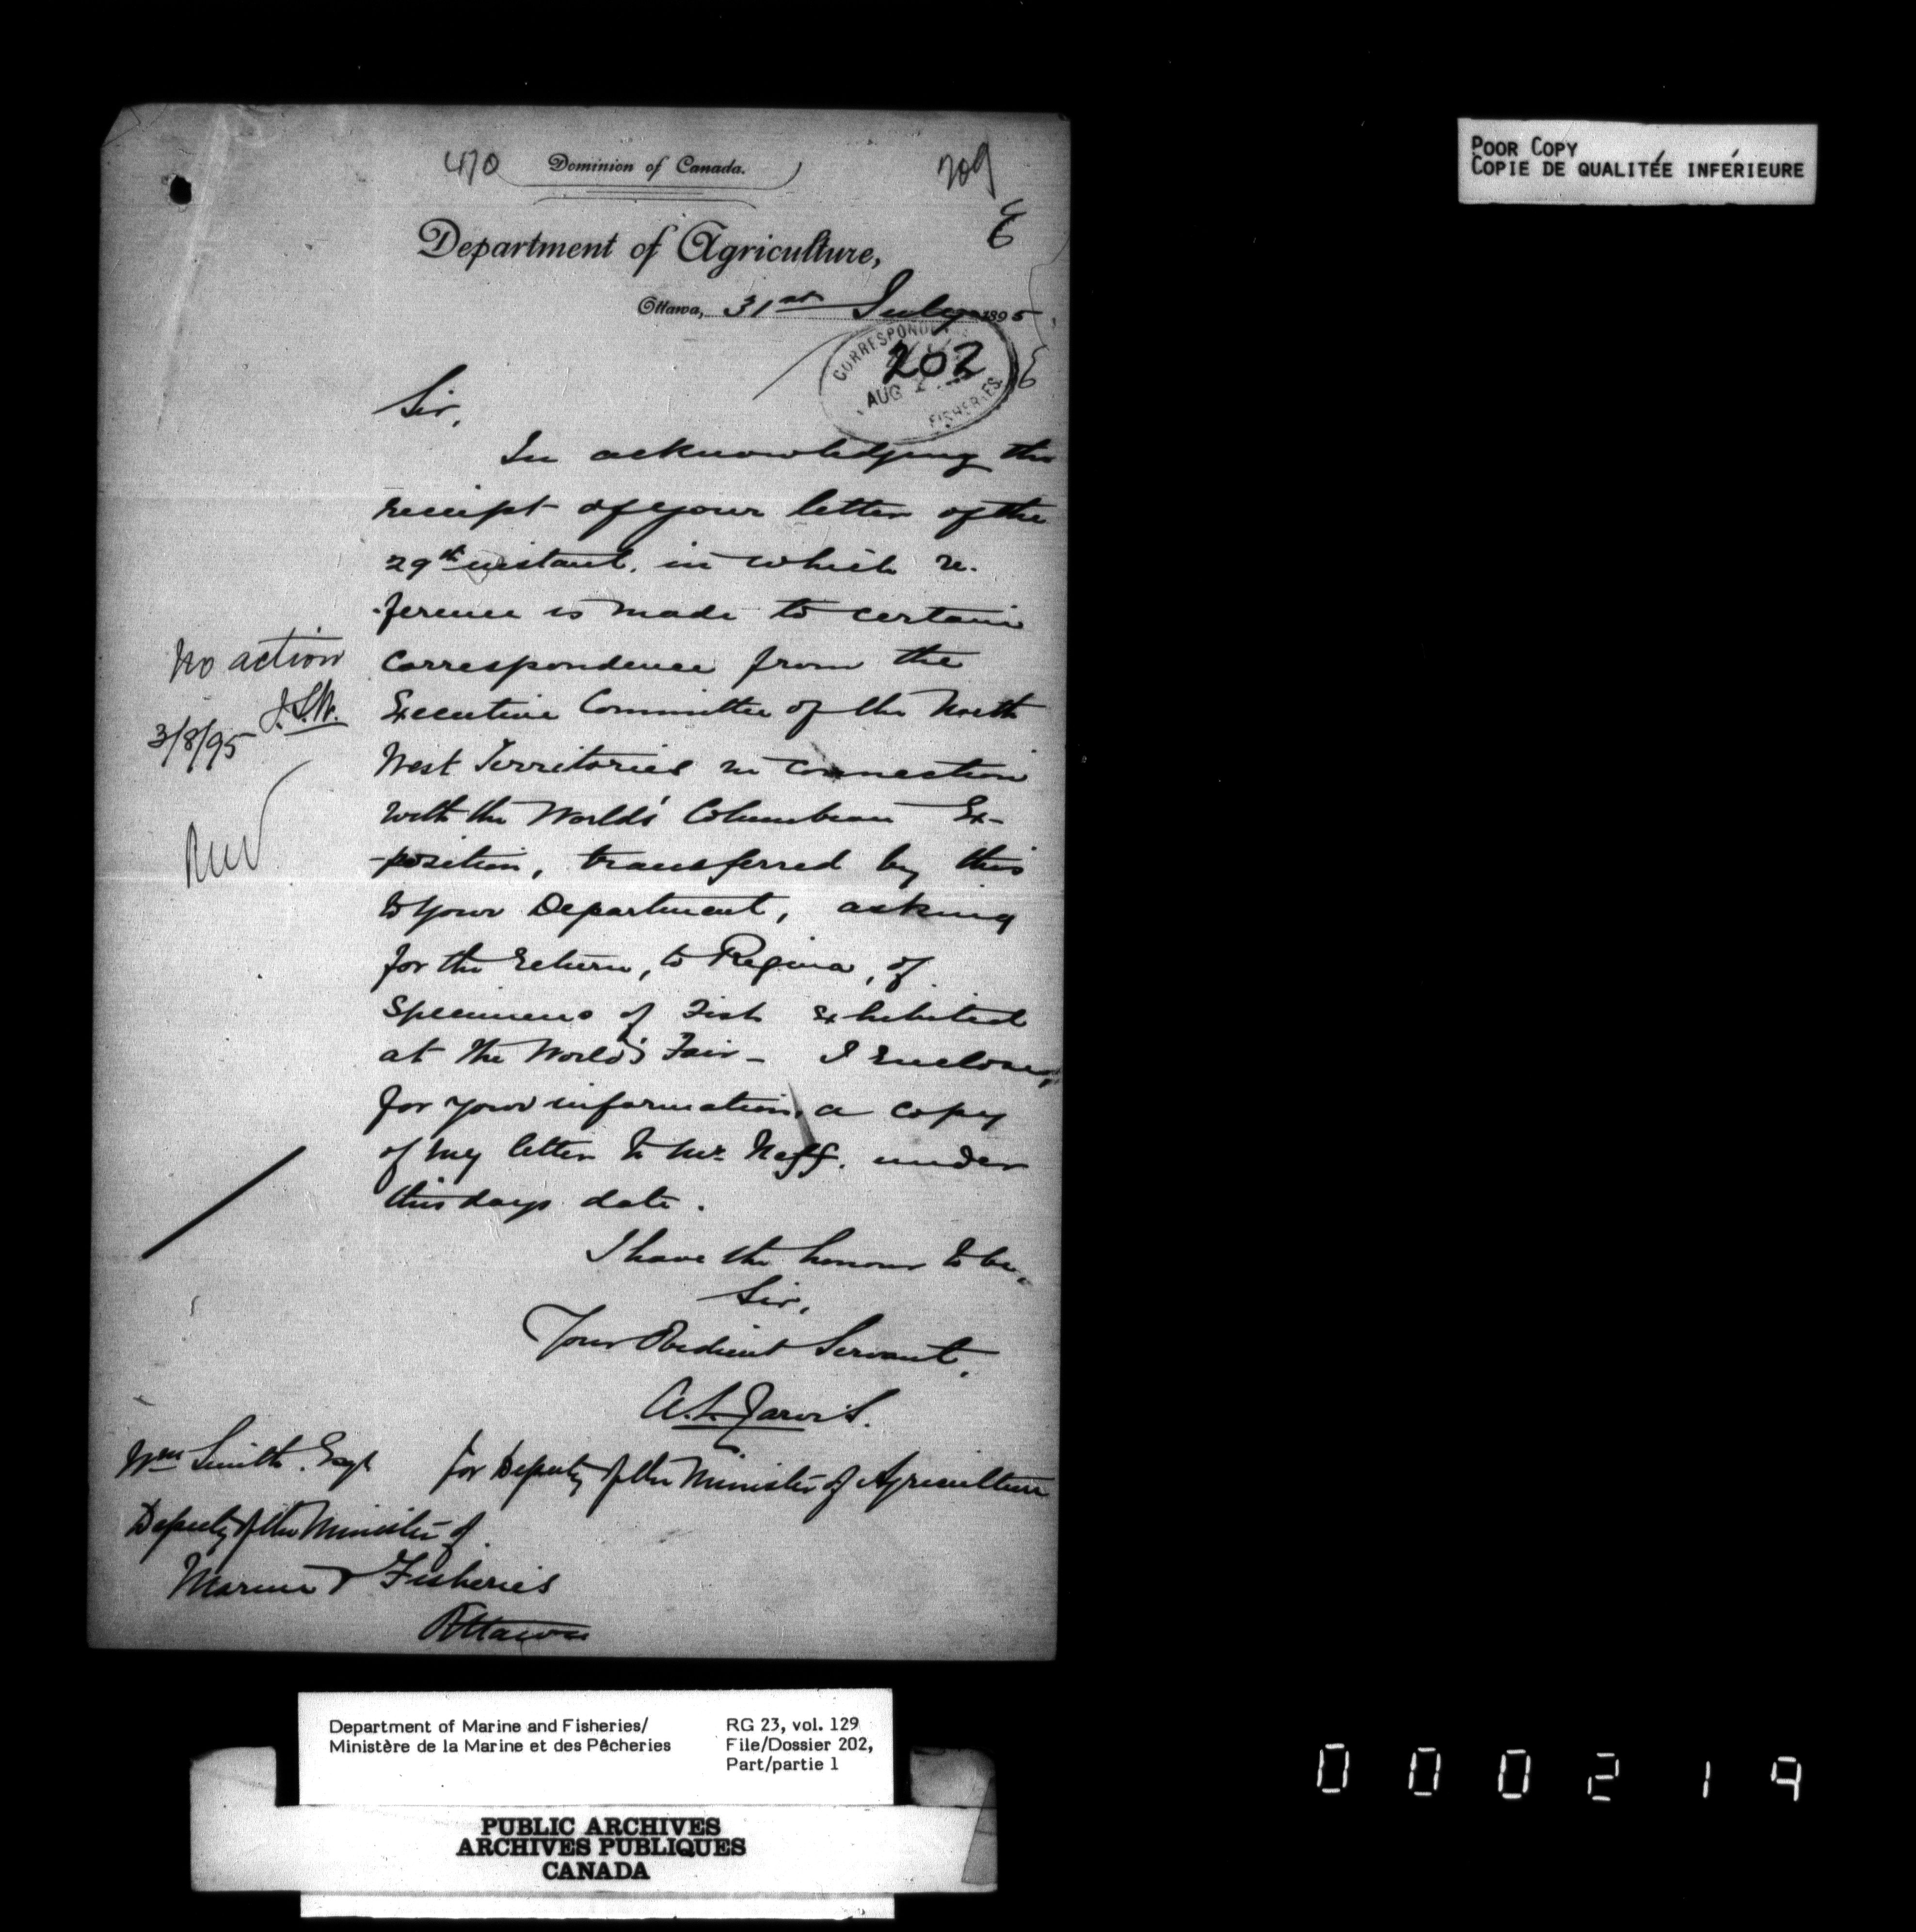 470
Dominion of Canada.
709
Department of Agriculture,
Ottawa, 31st July 1895
CORRESPOND
202
AUG 2
FISHERIES
Sir,
In acknowledging the
receipt of your letter of the
29th instant, in which re-
-ference is made to certain
correspondence from the
Executive Committee of the North
West Territories in connection
with the World's Columbian Ex-
-position, transferred by this
to your Department, asking
for the return, to Regina, of
Specimens of Fish exhibited
at the World's Fair - I enclose,
for your information, a copy
of my letter to Mr. Neff. under
this days date.
No action
3/8/95
I have the honour to be,
Sir,
Your Obedient Servant,
A.L. Jarvis.
for Deputy of the Minister of Agriculture
Wm Smith. Esqr
Deputy of the Minister of
Marine & Fisheries
Ottawa
POOR COPY
COPIE DE QUALITÉE INFÉRIEURE
Department of Marine and Fisheries/
Ministère de la Marine et des Pêcheries
RG 23, vol. 129
File/Dossier 202,
Part/partie 1
PUBLIC ARCHIVES
ARCHIVES PUBLIQUES
CANADA
000219